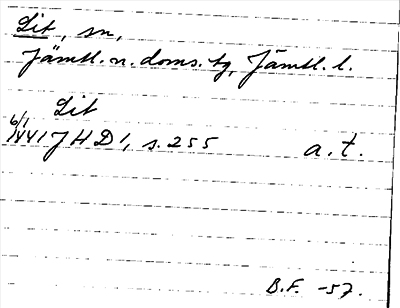 Lit, sn,
Jämtl. n. doms. tg, Jämtl. l.
Lit
6/1 1441 JHD 1, s. 255 a.t.
B.F. -57.